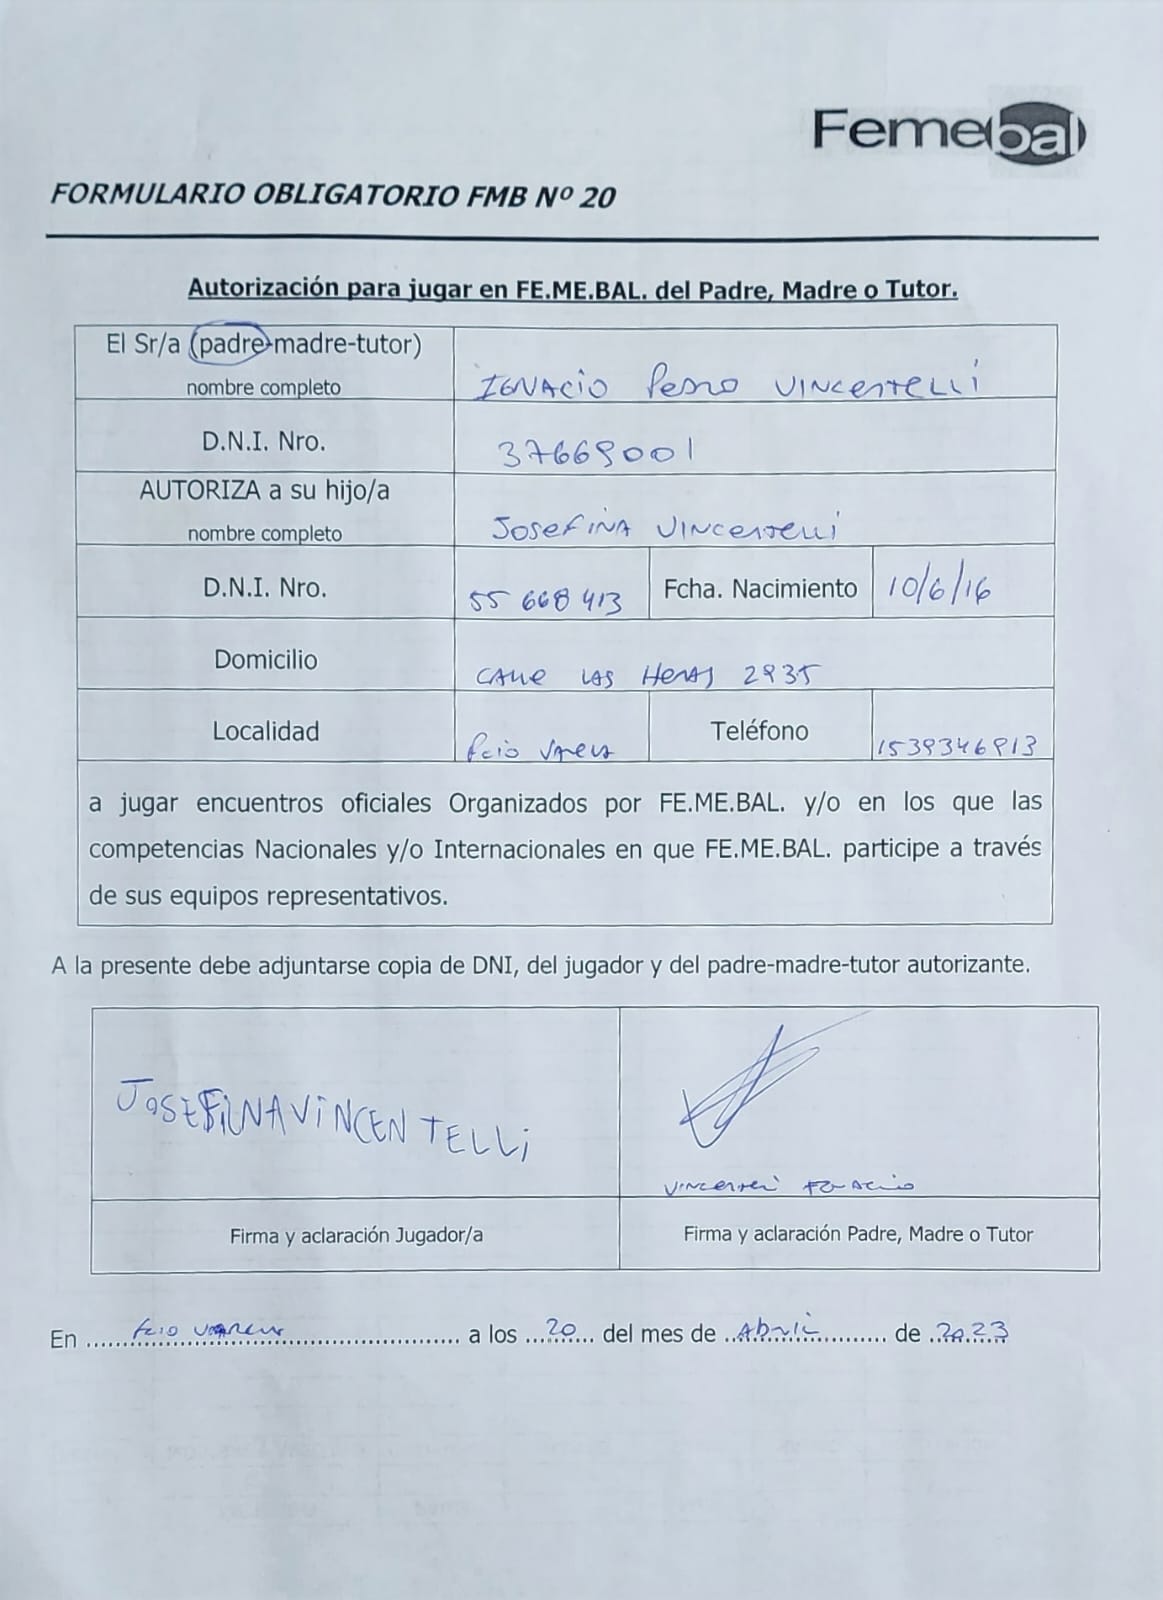 Femebal
FORMULARIO OBLIGATORIO FMB Nº 20
Autorización para jugar en FE.ME.BAL. del Padre, Madre o Tutor.
El Sr/a (padre-madre-tutor)
nombre completo
IGNACIO Pedro VINCENTELLI
D.N.I. Nro.
37669001
AUTORIZA a su hijo/a
nombre completo
JOSEFINA VINCENTELLI
D.N.I. Nro.
55 668 413
Fcha. Nacimiento
10/6/16
Domicilio
CALLE LAS HERAS 2935
Localidad
Fcio VARELA
Teléfono
1539346913
a jugar encuentros oficiales Organizados por FE.ME.BAL. y/o en los que las
competencias Nacionales y/o Internacionales en que FE.ME.BAL. participe a través
de sus equipos representativos.
A la presente debe adjuntarse copia de DNI, del jugador y del padre-madre-tutor autorizante.
JOSEFINA VINCENTELLI
VINCENTELLI IGNACIO
Firma y aclaración Jugador/a
Firma y aclaración Padre, Madre o Tutor
En Fcio VARELA a los 20 del mes de Abril de 2023